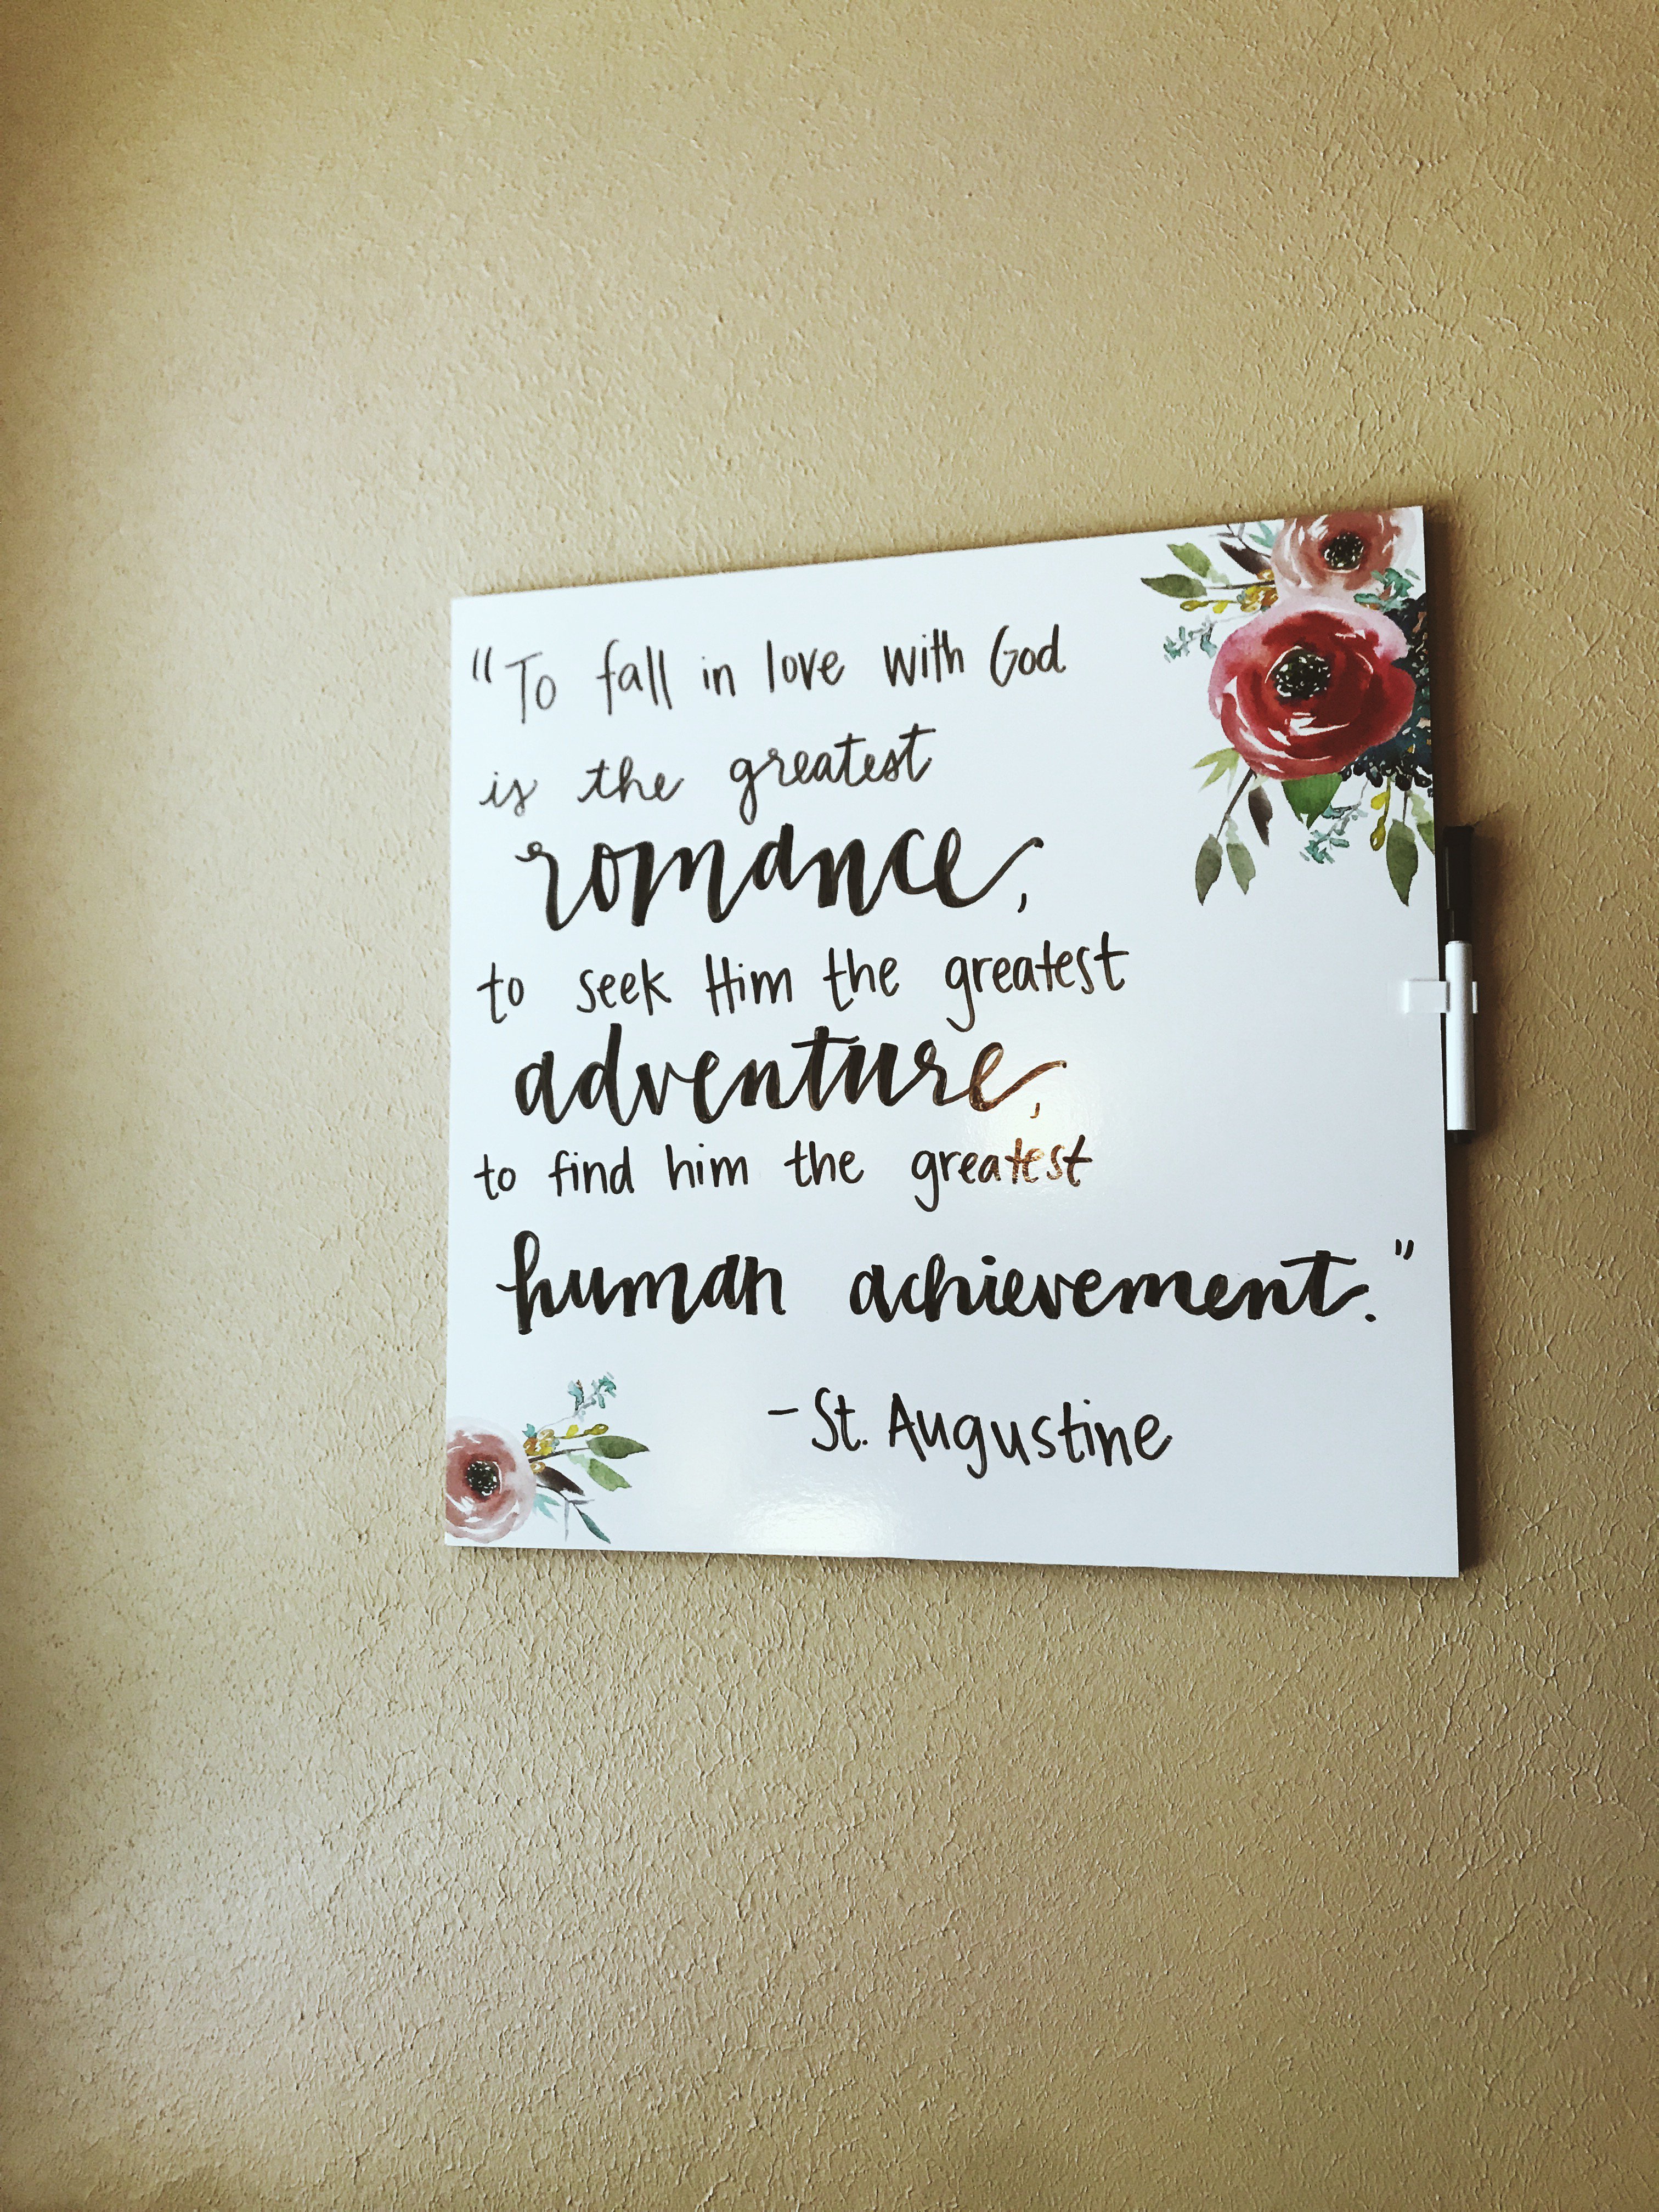 "To fall in love with God
is the greatest
romance,
to seek Him the greatest
adventure,
to find him the greatest
human achievement."
- St. Augustine